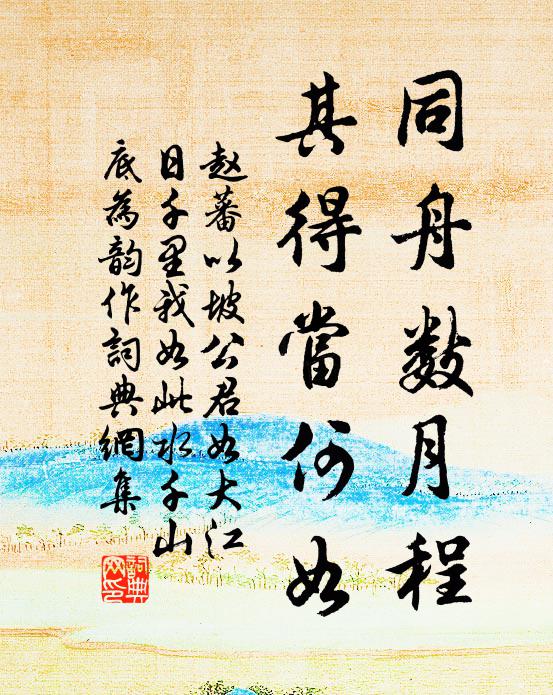 同舟数月程
其得當何如
赵蕃以坡公君如大江
日千里我如此水千山
底為韵作詞典網集
詞典网印